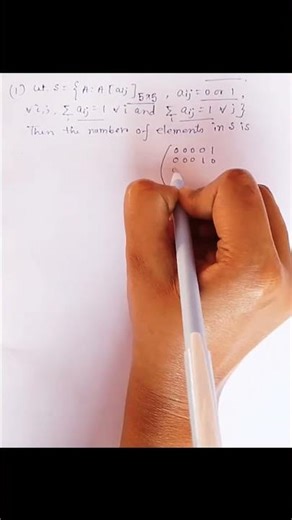 (1) Let S = { A: A [aij]5x5 , aij = 0 or 1,
∀ i,j, Σj aij = 1 ∀ i and Σi aij = 1 ∀ j }
Then the number of elements in S is
0 0 0 0 1
0 0 0 1 0